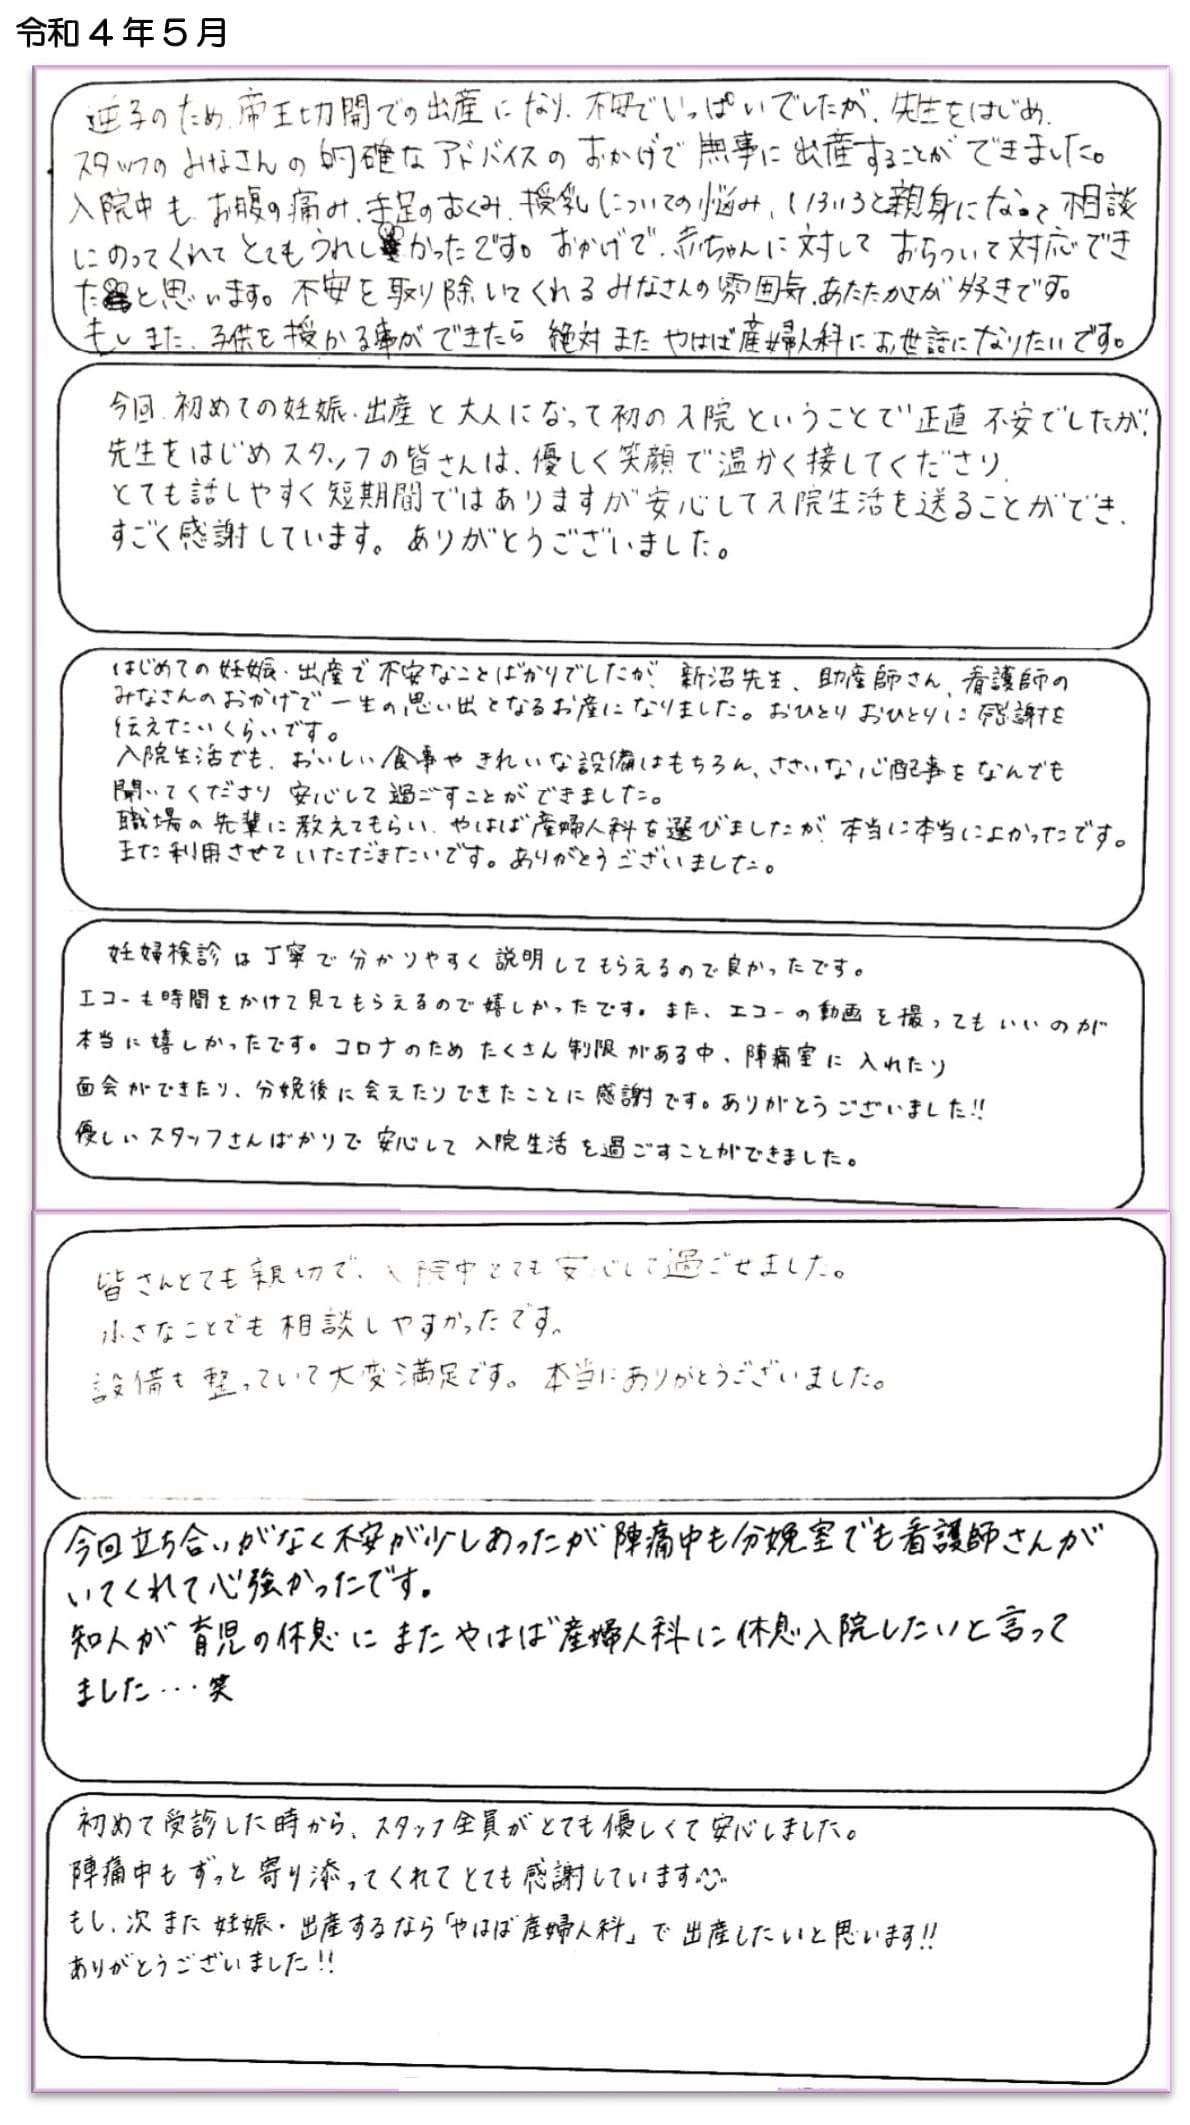 令和４年５月
逆子のため、帝王切開での出産になり、不安でいっぱいでしたが、先生をはじめ、
スタッフのみなさんの的確なアドバイスのおかげで無事に出産することができました。
入院中も、お腹の痛み、手足のむくみ、授乳についての悩み、いろいろと親身になって相談
にのってくれてとてもうれしかったです。おかげで、赤ちゃんに対しておちついて対応でき
たと思います。不安を取り除いてくれるみなさんの雰囲気、あたたかさが好きです。
もしまた、子供を授かる事ができたら絶対またやはば産婦人科にお世話になりたいです。
今回、初めての妊娠・出産と大人になって初の入院ということで正直不安でしたが、
先生をはじめスタッフの皆さんは、優しく笑顔で温かく接してくださり、
とても話しやすく短期間ではありますが安心して入院生活を送ることができ、
すごく感謝しています。ありがとうございました。
はじめての妊娠・出産で不安なことばかりでしたが、新沼先生、助産師さん、看護師の
みなさんのおかげで一生の思い出となるお産になりました。おひとりおひとりに感謝を
伝えたいくらいです。
入院生活でも、おいしい食事やきれいな設備はもちろん、ささいな心配事をなんでも
聞いてくださり安心して過ごすことができました。
職場の先輩に教えてもらい、やはば産婦人科を選びましたが、本当に本当によかったです。
また利用させていただきたいです。ありがとうございました。
妊婦検診は丁寧で分かりやすく説明してもらえるので良かったです。
エコーも時間をかけて見てもらえるので嬉しかったです。また、エコーの動画を撮ってもいいのが
本当に嬉しかったです。コロナのためたくさん制限がある中、陣痛室に入れたり
面会ができたり、分娩後に会えたりできたことに感謝です。ありがとうございました!!
優しいスタッフさんばかりで安心して入院生活を過ごすことができました。
皆さんとても親切で、入院中とても安心して過ごせました。
小さなことでも相談しやすかったです。
設備も整っていて大変満足です。本当にありがとうございました。
今回立ち合いがなく不安が少しあったが陣痛中も分娩室でも看護師さんが
いてくれて心強かったです。
知人が育児の休息にまたやはば産婦人科に休息入院したいと言って
ました・・・笑
初めて受診した時から、スタッフ全員がとても優しくて安心しました。
陣痛中もずっと寄り添ってくれてとても感謝しています
もし、次また妊娠・出産するなら「やはば産婦人科」で出産したいと思います!!
ありがとうございました!!